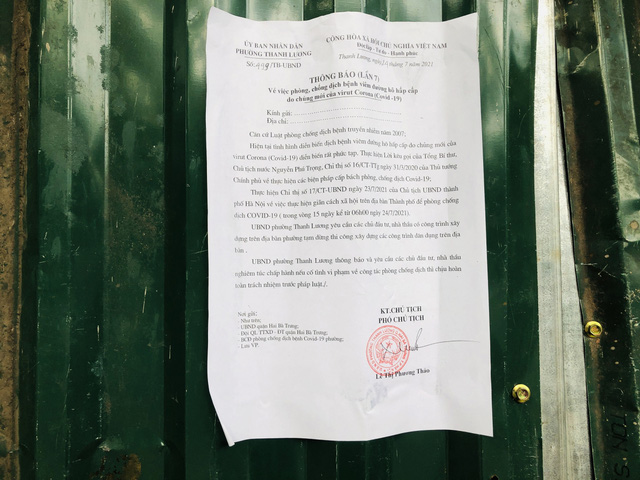 ỦY BAN NHÂN DÂN
PHƯỜNG THANH LƯƠNG
Số: /TB-UBND
CỘNG HÒA XÃ HỘI CHỦ NGHĨA VIỆT NAM
Độc lập - Tự do - Hạnh phúc
Thanh Lương, ngày tháng 7 năm 2021
THÔNG BÁO (LẦN 7)
Về việc phòng, chống dịch bệnh viêm đường hô hấp cấp
do chủng mới của virut Corona (Covid -19)
Kính gửi:
Địa chỉ:
Căn cứ Luật phòng chống dịch bệnh truyền nhiễm năm 2007;
Hiện tại tình hình diễn biến dịch bệnh viêm đường hô hấp cấp do chủng mới của
virut Corona (Covid-19) diễn biến rất phức tạp. Thực hiện Lời kêu gọi của Tổng Bí thư,
Chủ tịch nước Nguyễn Phú Trọng, Chỉ thị số 16/CT-TTg ngày 31/3/2020 của Thủ tướng
Chính phủ về thực hiện các biện pháp cấp bách phòng, chống dịch Covid-19;
Thực hiện Chỉ thị số 17/CT-UBND ngày 23/7/2021 của Chủ tịch UBND thành
phố Hà Nội về việc thực hiện giãn cách xã hội trên địa bàn Thành phố để phòng chống
dịch COVID-19 ( trong vòng 15 ngày kể từ 06h00 ngày 24/7/2021).
UBND phường Thanh Lương yêu cầu các chủ đầu tư, nhà thầu có công trình xây
dựng trên địa bàn phường tạm dừng thi công xây dựng các công trình dân dụng trên địa
bàn .
UBND phường Thanh Lương thông báo và yêu cầu các chủ đầu tư, nhà thầu
nghiêm túc chấp hành nếu cố tình vi phạm về công tác phòng chống dịch thì chịu hoàn
toàn trách nhiệm trước pháp luật./.
Nơi gửi:
- Như trên;
- UBND quận Hai Bà Trưng;
- Đội QL TTXD - ĐT quận Hai Bà Trưng;
- BCĐ phòng chống dịch bệnh Covid-19 phường;
- Lưu VP.
KT.CHỦ TỊCH
PHÓ CHỦ TỊCH
Lê Thị Phương Thảo